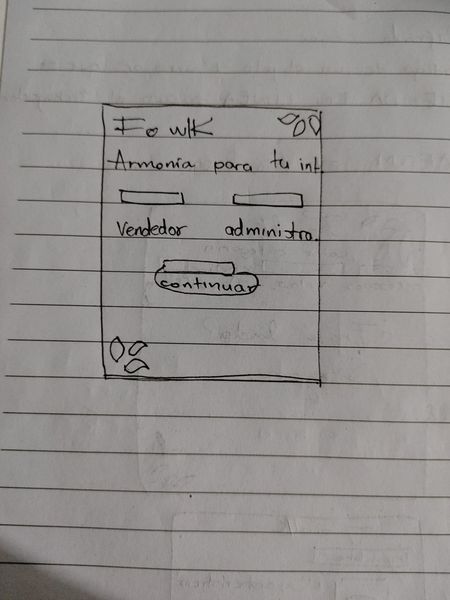 Fo wlk
Armonía para tu int.
Vendedor administra.
continuar